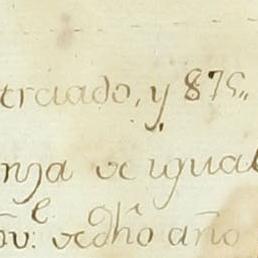 traiado, y 875,,
nza de igual
de dho año